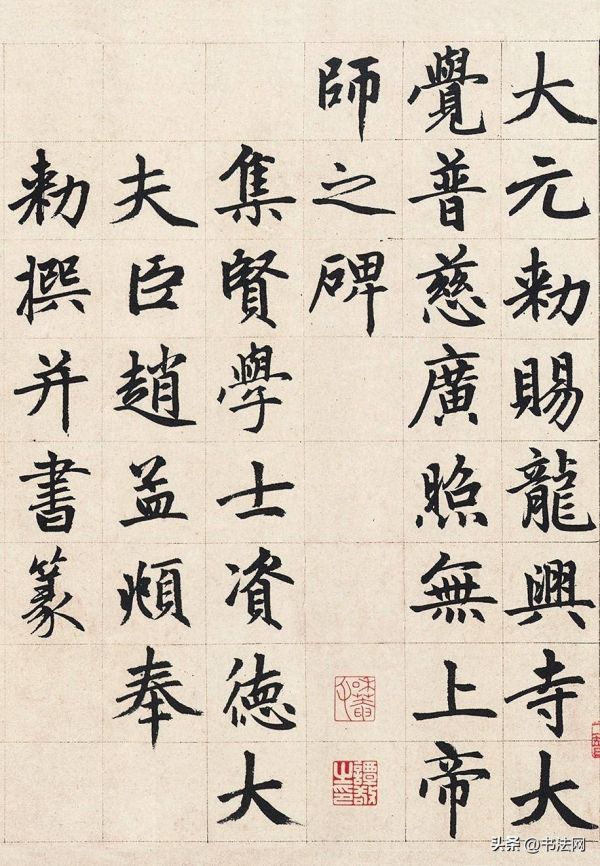 大元勅賜龍興寺大
覺普慈廣照無上帝
師之碑
集賢學士資德大
夫臣趙孟頫奉
勅撰并書篆
頭条 @书法网